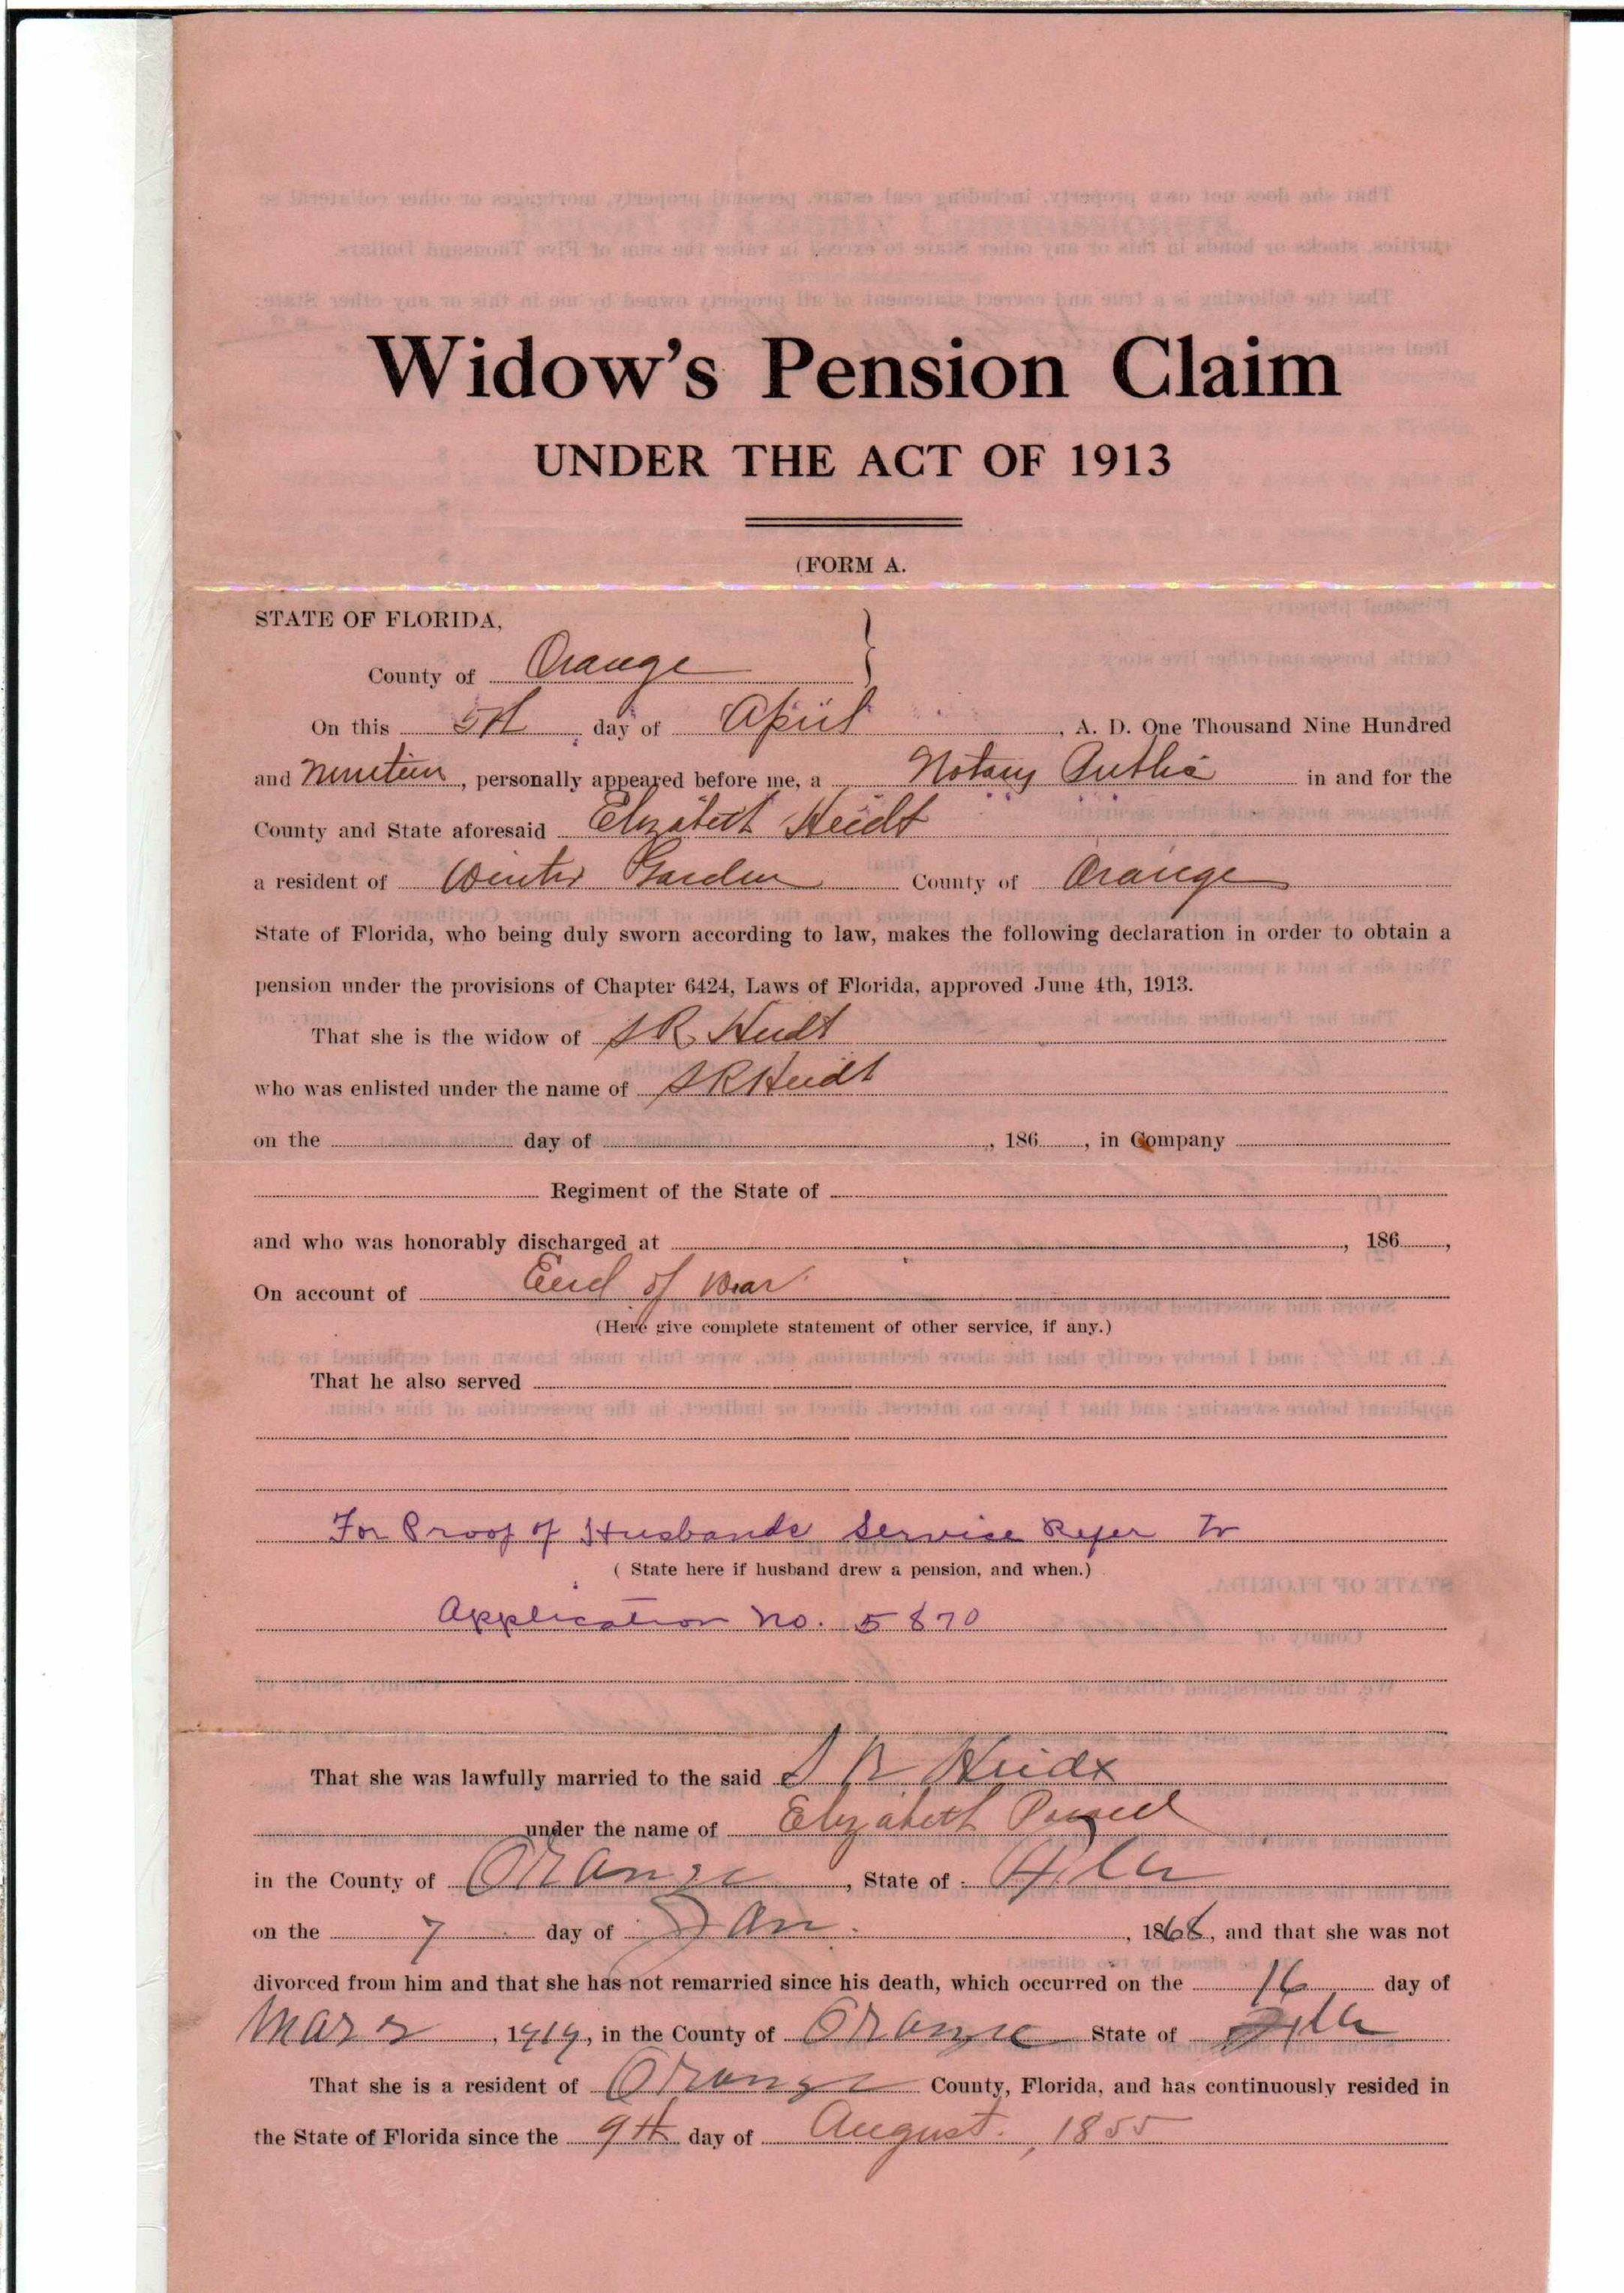 Widow's Pension Claim
UNDER THE ACT OF 1913
(FORM A.
STATE OF FLORIDA,
County of Orange
On this 5th day of April, A. D. One Thousand Nine Hundred
and Nineteen, personally appeared before me, a Notary Public in and for the
County and State aforesaid Elizabeth Heidt
a resident of Winter Garden County of Orange
State of Florida, who being duly sworn according to law, makes the following declaration in order to obtain a
pension under the provisions of Chapter 6424, Laws of Florida, approved June 4th, 1913.
That she is the widow of S R Heidt
who was enlisted under the name of S R Heidt
on the day of , 186 , in Company
Regiment of the State of
and who was honorably discharged at , 186 ,
On account of End of War
(Here give complete statement of other service, if any.)
That he also served
For Proof of Husbands Service Refer to
( State here if husband drew a pension, and when.)
Application No. 5870
That she was lawfully married to the said S R Heidt
under the name of Elizabeth
in the County of Orange, State of Fla
on the 7 day of Jan., 1868, and that she was not
divorced from him and that she has not remarried since his death, which occurred on the 16 day of
Mar, 1919, in the County of Orange State of Fla
That she is a resident of Orange County, Florida, and has continuously resided in
the State of Florida since the 9th day of August, 1855